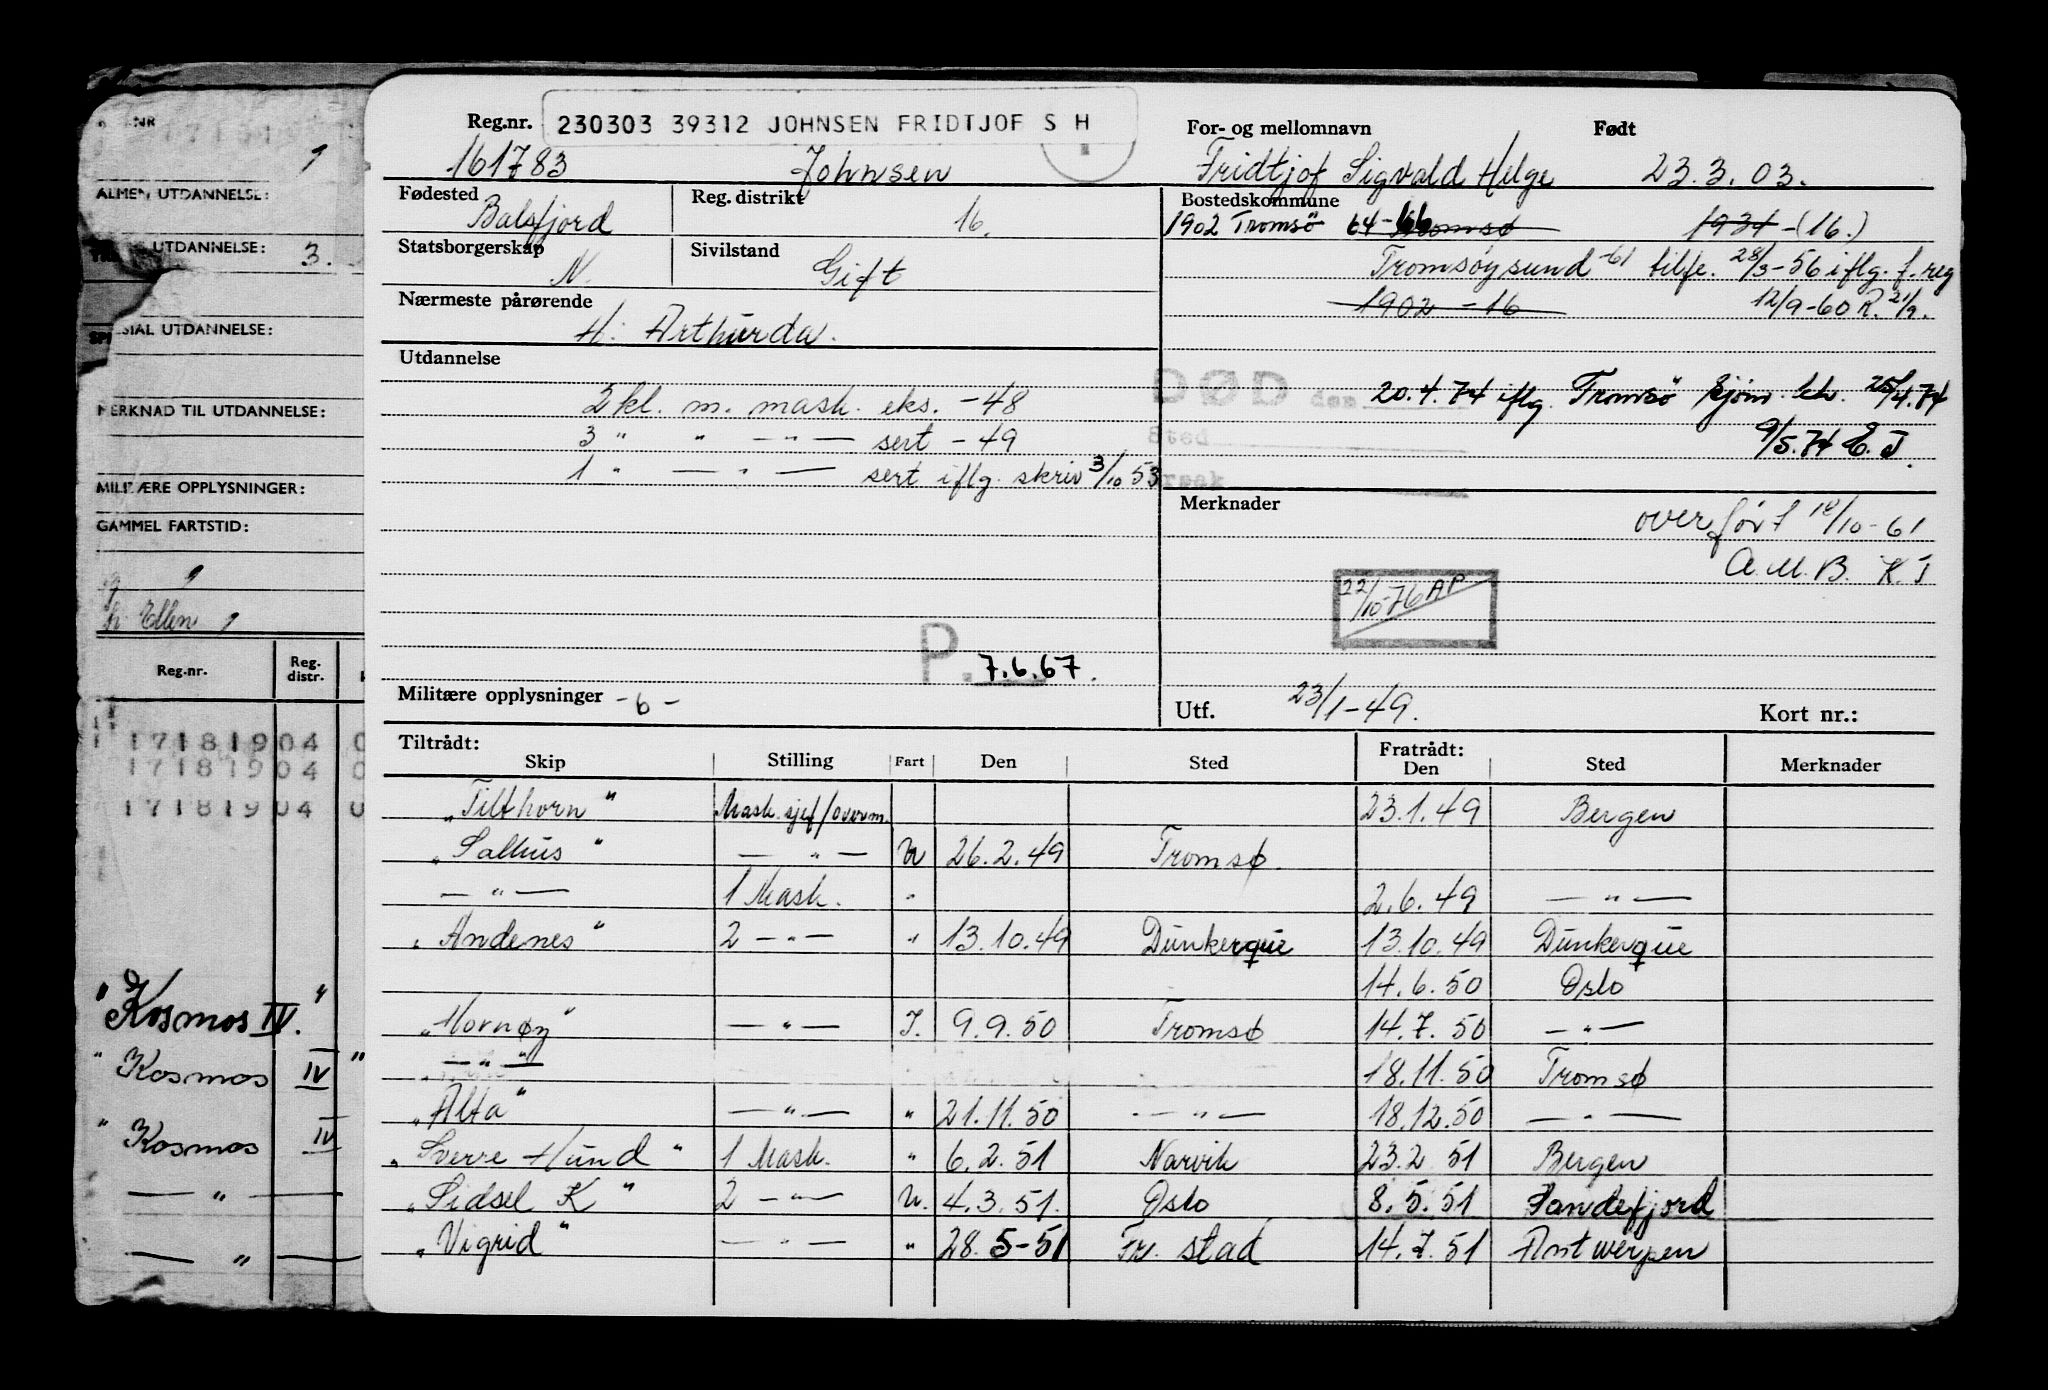 Reg.nr. 230303 39312 JOHNSEN FRIDTJOF S H For- og mellomnavn Født
161783 Johnsen Fridtjof Sigvald Helge 23.3.03.
Fødested Balsfjord Reg. distrikt 16. Bostedskommune
1902 Tromsö 64-66 Tromsø 1931-(16.)
Statsborgerskap N. Sivilstand Gift
Tromsøysund -61 tilfe. 28/3-56 iflg. f. reg
Nærmeste pårørende H: Arthurda.
1902 - 16 12/9-60 R. 21/9.
Utdannelse
2 kl. m. mask. eks. -48
3 " " — " — sert -49
1 " — " — sert iflg. skriv 3/10 53
DØD den 20.4.74 iflg. Tromsö sjöm. ktr. 25/4.74
Sted 9/5.74 E.J.
Årsak
Merknader
overført 18/10-61
A.M.B. K.J
22/10-76 AP
P. 7.6.67.
Militære opplysninger -6-
Utf. 23/1-49. Kort nr.:
Tiltrådt: Fratrådt:
Skip Stilling Fart Den Sted Den Sted Merknader
"Tilthorn" Mask. sjef/overm. 23.1.49 Bergen
"Salhus" — " — U 26.2.49 Tromsø.
— " — 1 Mask. " 2.6.49 — " —
"Andenes" 2 — " — " 13.10.49 Dunkerque 13.10.49 Dunkerque
14.6.50 Oslo
"Hornøy" — " — I. 9.9.50 Tromsø 14.7.50 — " —
— " — 18.11.50 Tromsø
"Alta" — " — " 21.11.50 — " — 18.12.50 — " —
"Sverre Hund" 1 Mask. " 6.2.51 Narvik 23.2 51 Bergen
"Sidsel K" 2 — " — U. 4.3.51. Oslo 8.5.51 Sandefjord
"Vigrid" — " — " 28.5-51 Fr. stad 14.7.51 Antwerpen
ALMEN UTDANNELSE:
UTDANNELSE: 3.
SIAL UTDANNELSE:
MERKNAD TIL UTDANNELSE:
MILITÆRE OPPLYSNINGER:
GAMMEL FARTSTID:
h. Ellen
Reg.nr. Reg. distr.
17181904 0
17181904 0
17181904 0
"Kosmos IV."
"Kosmos IV"
"Kosmos IV
— " —
— " —